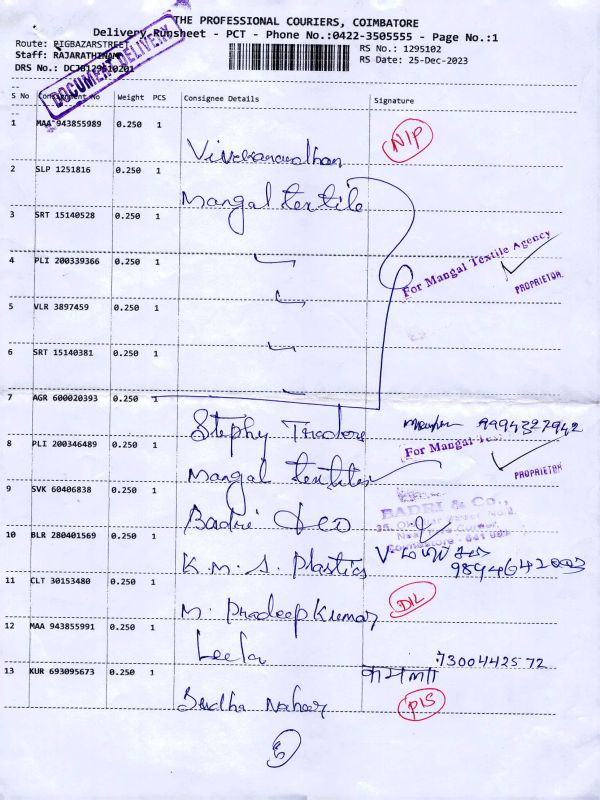 THE PROFESSIONAL COURIERS, COIMBATORE
Delivery Runsheet - PCT - Phone No.:0422-3505555 - Page No.:1
Route: PIGBAZARSTREET
RS No.: 1295102
Staff: RAJARATHINAM
RS Date: 25-Dec-2023
DRS No.: DCJ0129510201
DOCUMENT DELIVERY
S No Consignment No Weight PCS Consignee Details Signature
1 MAA 943855989 0.250 1 NIP
Vivekanandhan
2 SLP 1251816 0.250 1
Mangal textile
3 SRT 15140528 0.250 1
For Mangal Textile Agency
4 PLI 200339366 0.250 1
PROPRIETOR
5 VLR 3897459 0.250 1
6 SRT 15140381 0.250 1
7 AGR 600020393 0.250 1
Stephy Traders 9994327942
8 PLI 200346489 0.250 1 For Mangal
Mangal textiles PROPRIETOR
9 SVK 60406838 0.250 1
BADRI & Co.,
Badri & co
Coimbatore - 641 001
10 BLR 280401569 0.250 1
K.M.S. Plastics 9894642003
11 CLT 30153480 0.250 1 DIL
M. Pradeep Kumar
12 MAA 943855991 0.250 1
Leela 7300442572
13 KUR 693095673 0.250 1 कमला
PIS
5